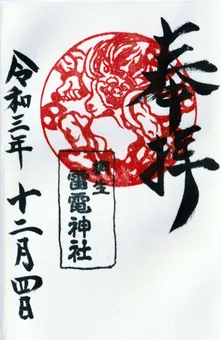 奉拝
桐生
雷電神社
令和三年 十二月四日